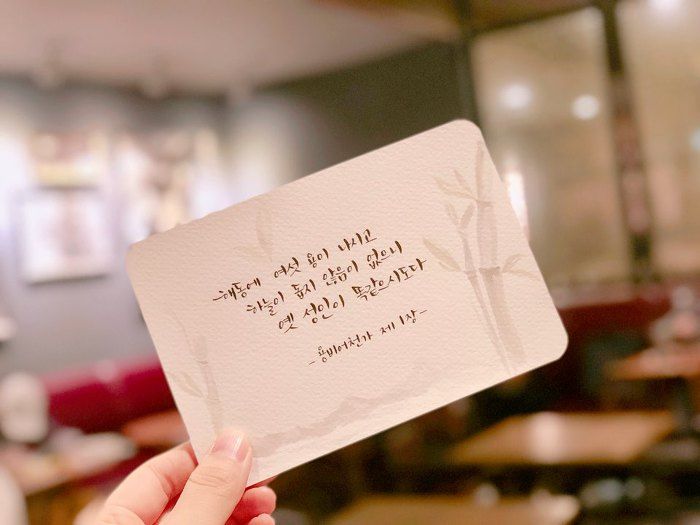 해동에 여섯 용이 나시고
하늘이 돕지 않음이 없으니
옛 성인이 똑같으시도다
-용비어천가 제1장-